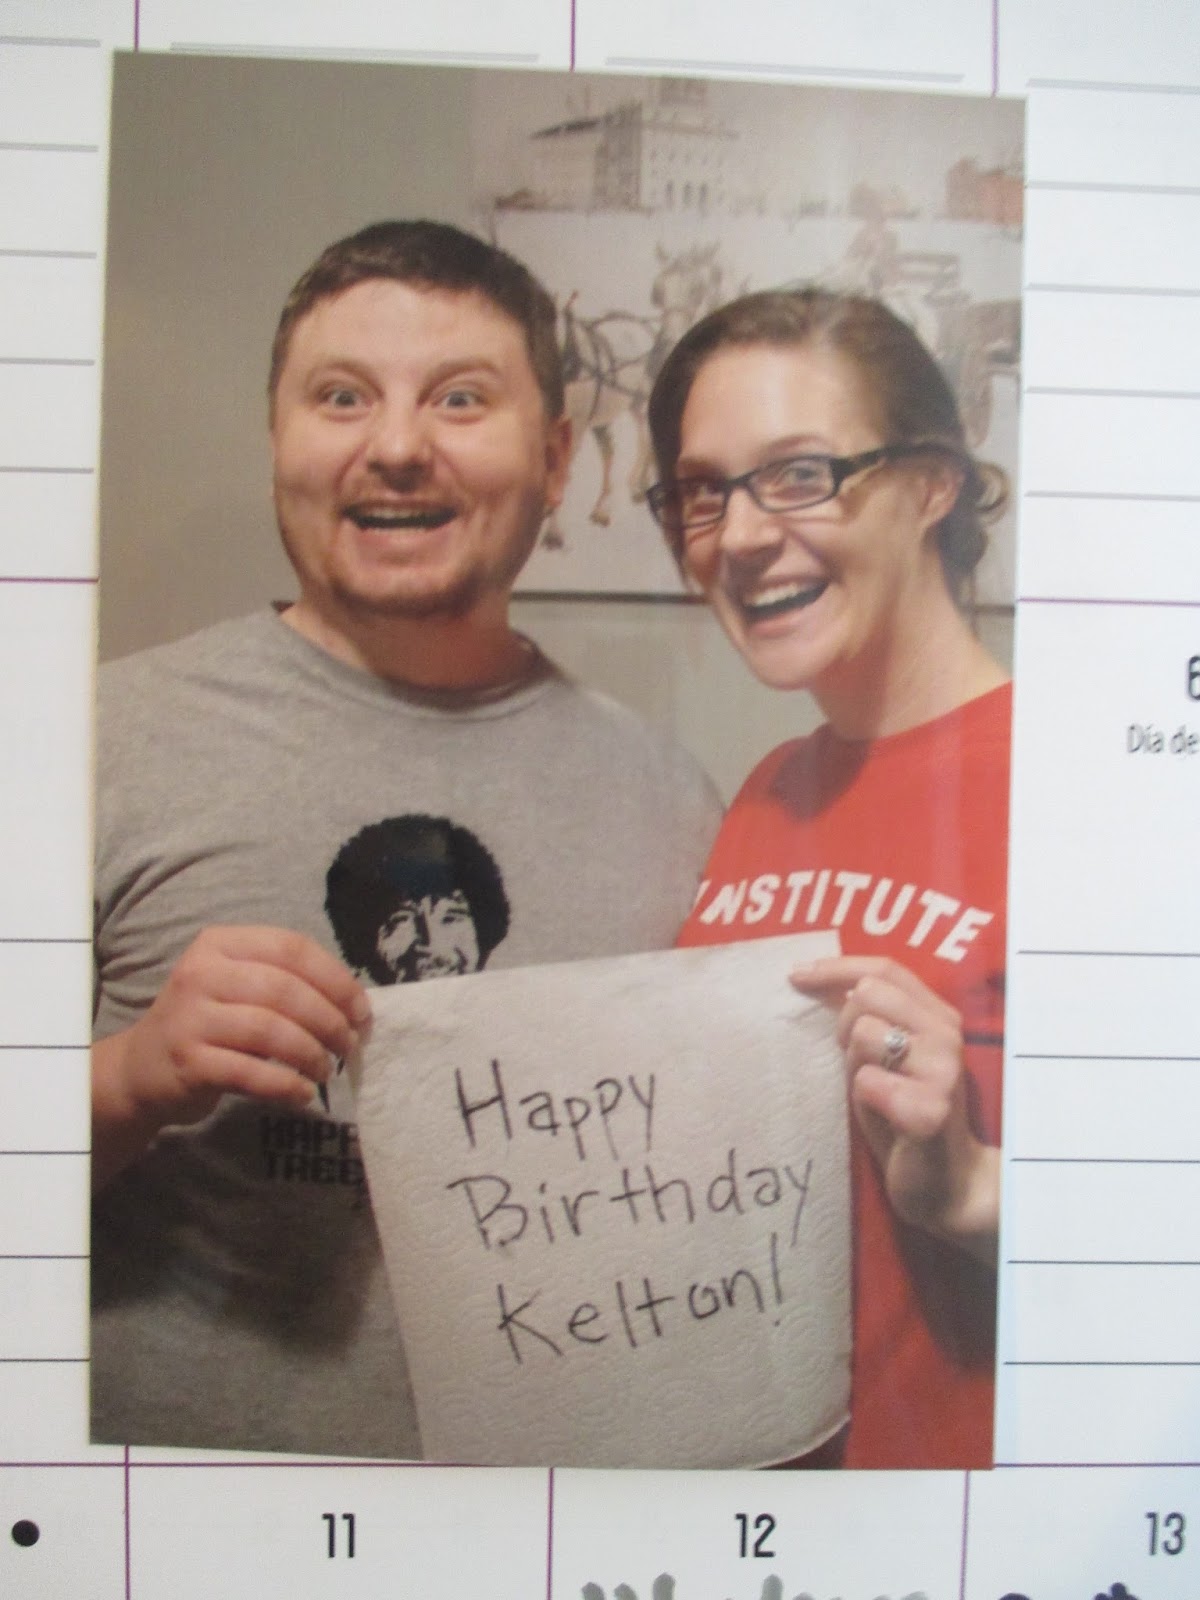 6
Día de
INSTITUTE
HAPP
TREE
Happy
Birthday
Kelton!
11
12
13